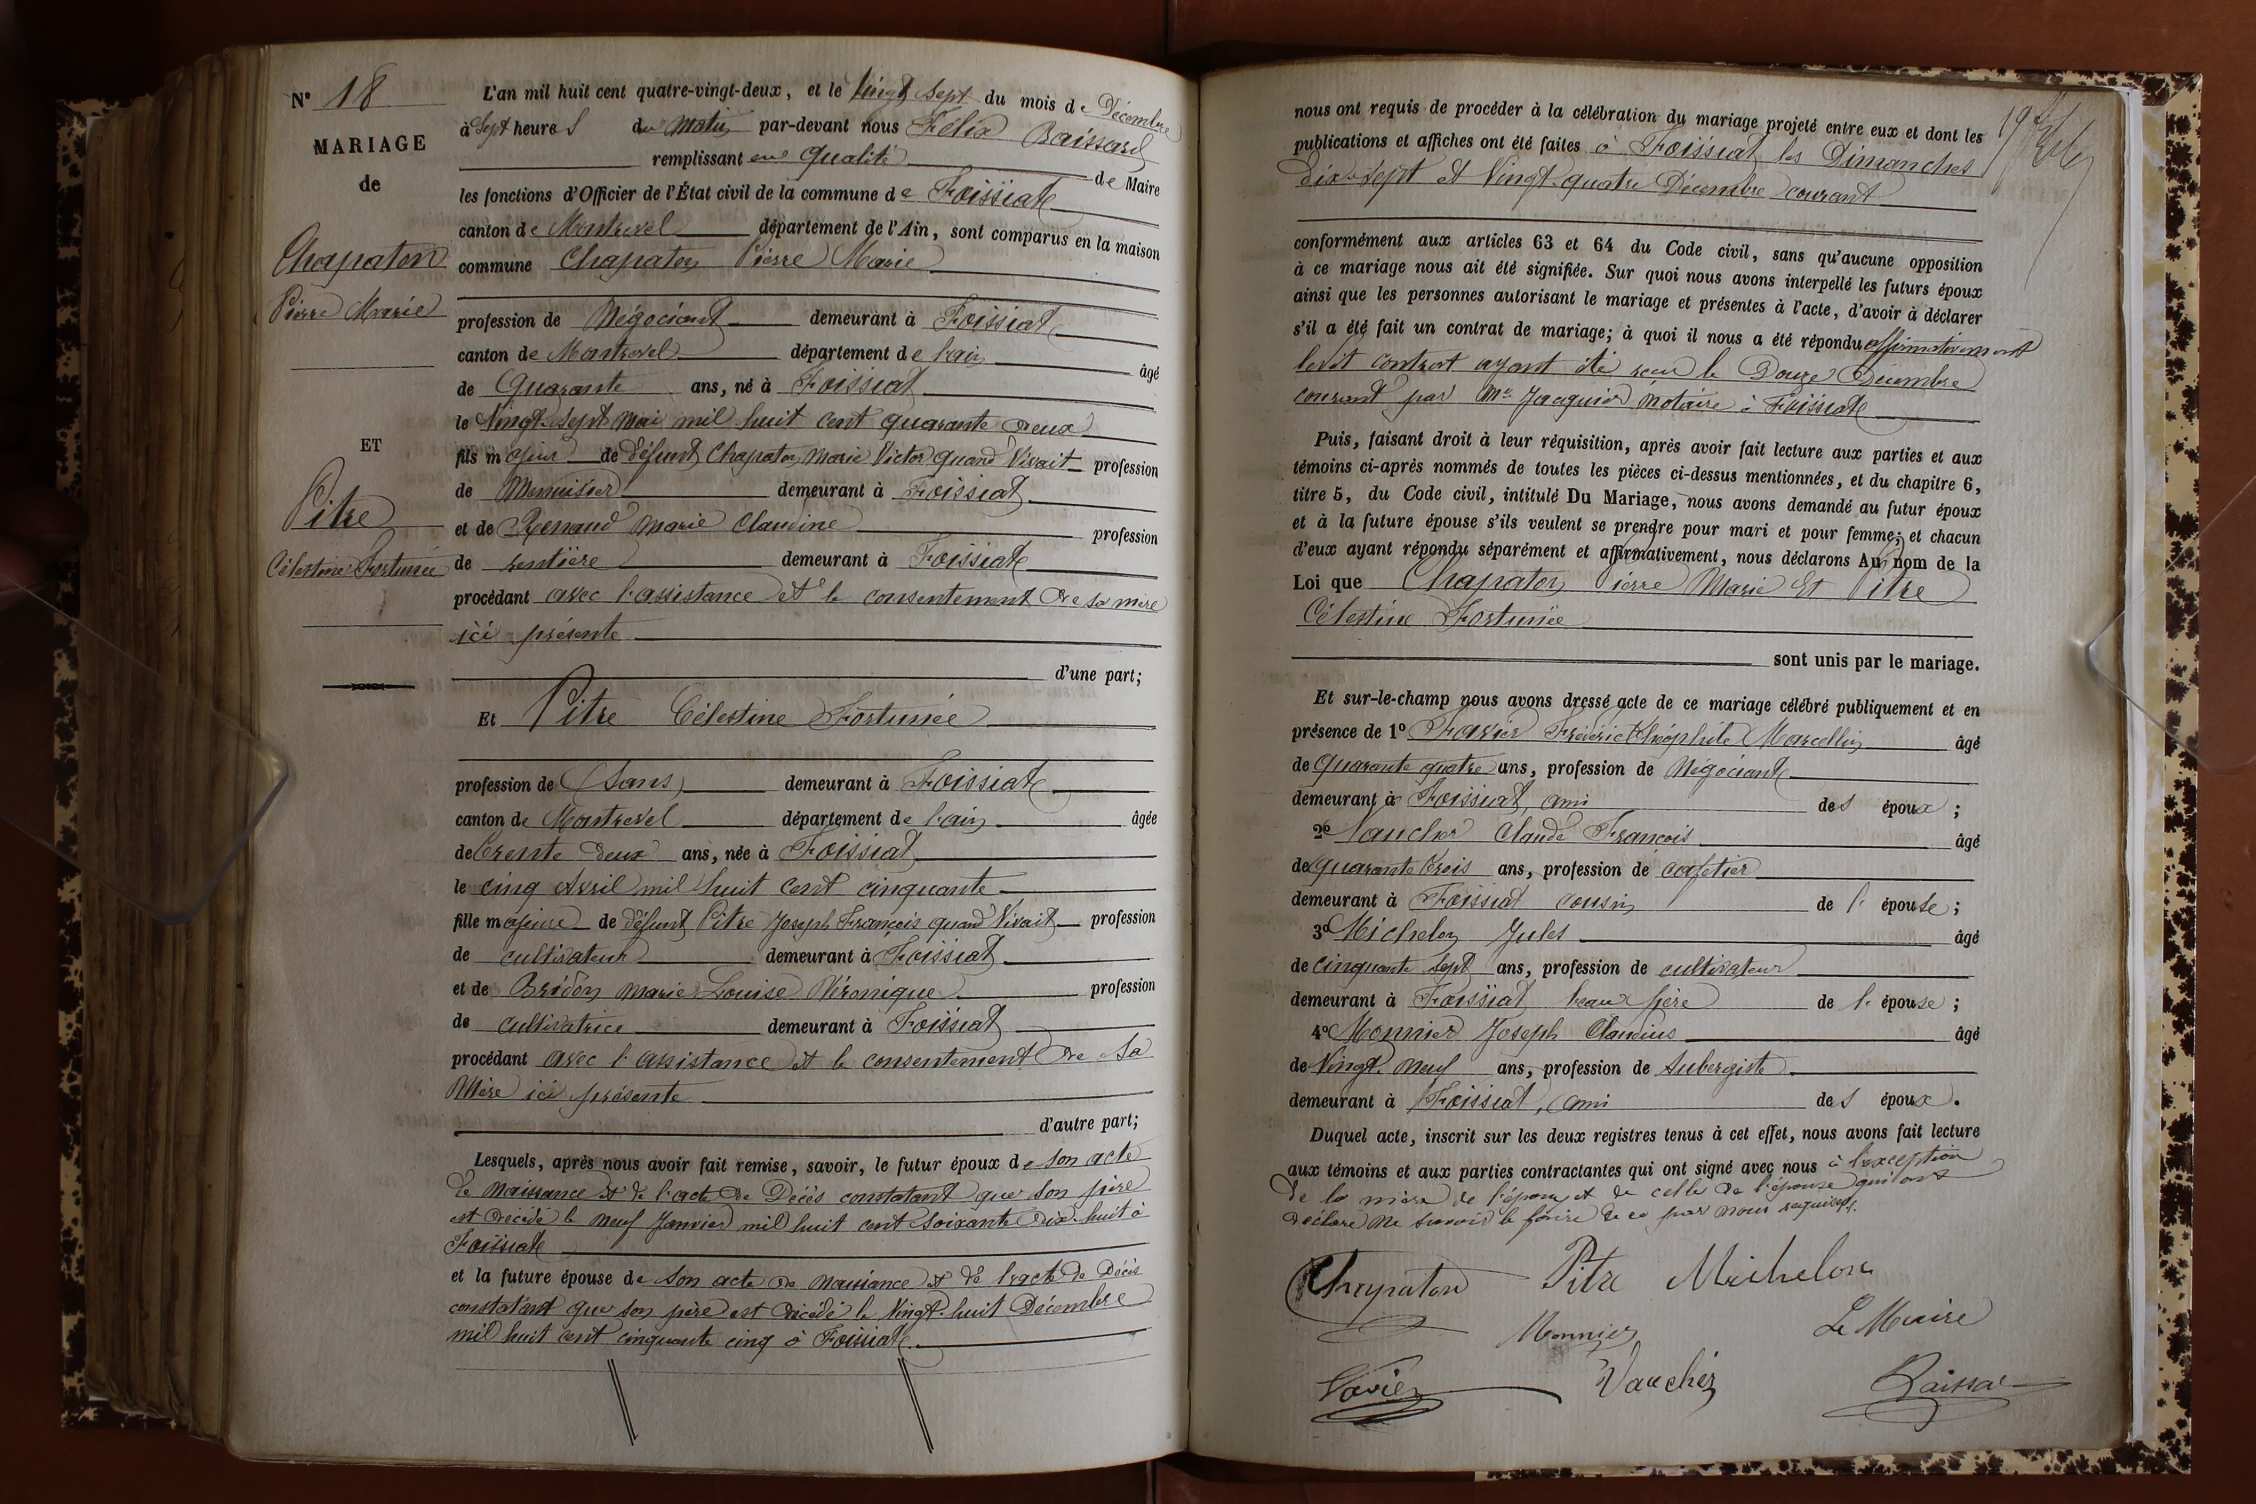 N° 18
MARIAGE
de
Chapaton
Pierre Marie
ET
Pitre
Célestine Fortunée
L'an mil huit cent quatre-vingt-deux, et le vingt sept du mois de Décembre
à Sept heures du Matin par-devant nous Félix Baissard
remplissant en qualité de Maire
les fonctions d'Officier de l'État civil de la commune de Foissiat
canton de Montrevel département de l'Ain, sont comparus en la maison
commune Chapaton Pierre Marie
profession de Négociant demeurant à Foissiat
canton de Montrevel département de l'ain âgé
de Quarante ans, né à Foissiat
le Vingt-sept Mai mil huit cent quarante deux
fils majeur de défunt Chapaton Marie Victor quand Vivait profession
de Menuisier demeurant à Foissiat
et de Renaud Marie Claudine profession
de rentière demeurant à Foissiat
procédant avec l'assistance et le consentement de sa mère
ici présente
d'une part;
Et Pitre Célestine Fortunée
profession de Sans demeurant à Foissiat
canton de Montrevel département de l'ain âgée
de trente deux ans, née à Foissiat
le cinq Avril mil huit cent cinquante
fille majeure de défunt Pitre Joseph François quand Vivait profession
de cultivateur demeurant à Foissiat
et de Bridon Marie Louise Véronique profession
de cultivatrice demeurant à Foissiat
procédant avec l'assistance et le consentement de sa
Mère ici présente
d'autre part;
Lesquels, après nous avoir fait remise, savoir, le futur époux de son acte
de naissance et de l'acte de Décès constatant que son père
est décédé le neuf Janvier mil huit cent soixante dix-huit à
Foissiat
et la future épouse de son acte de naissance et de l'acte de Décès
constatant que son père est décédé le Vingt-huit Décembre
mil huit cent cinquante cinq à Foissiat
nous ont requis de procéder à la célébration du mariage projeté entre eux et dont les
publications et affiches ont été faites à Foissiat les Dimanches
Dix-sept et Vingt-quatre Décembre courant
19
conformément aux articles 63 et 64 du Code civil, sans qu'aucune opposition
à ce mariage nous ait été signifiée. Sur quoi nous avons interpellé les futurs époux
ainsi que les personnes autorisant le mariage et présentes à l'acte, d'avoir à déclarer
s'il a été fait un contrat de mariage; à quoi il nous a été répondu affirmativement
ledit contrat ayant été reçu le Douze Décembre
courant par Me Jacquier notaire à Foissiat
Puis, faisant droit à leur réquisition, après avoir fait lecture aux parties et aux
témoins ci-après nommés de toutes les pièces ci-dessus mentionnées, et du chapitre 6,
titre 5, du Code civil, intitulé Du Mariage, nous avons demandé au futur époux
et à la future épouse s'ils veulent se prendre pour mari et pour femme; et chacun
d'eux ayant répondu séparément et affirmativement, nous déclarons Au nom de la
Loi que Chapaton Pierre Marie Et Pitre
Célestine Fortunée
sont unis par le mariage.
Et sur-le-champ nous avons dressé acte de ce mariage célébré publiquement et en
présence de 1° Favier Fréderic Théophile Marcellin âgé
de Quarante quatre ans, profession de Négociant
demeurant à Foissiat, ami des époux;
2° Vaucher Claude François âgé
de quarante trois ans, profession de cafetier
demeurant à Foissiat cousin de l'épouse;
3° Michelon Jules âgé
de cinquante sept ans, profession de cultivateur
demeurant à Foissiat beau frère de l'épouse;
4° Monnier Joseph Claudius âgé
de Vingt neuf ans, profession de Aubergiste
demeurant à Foissiat, ami des époux.
Duquel acte, inscrit sur les deux registres tenus à cet effet, nous avons fait lecture
aux témoins et aux parties contractantes qui ont signé avec nous à l'exception
de la mère de l'époux et de celle de l'épouse qui ont
déclaré ne savoir le faire de ce par nous requises.
Chapaton Pitre Michelon
Monnier Le Maire
Favier Vaucher Baissard